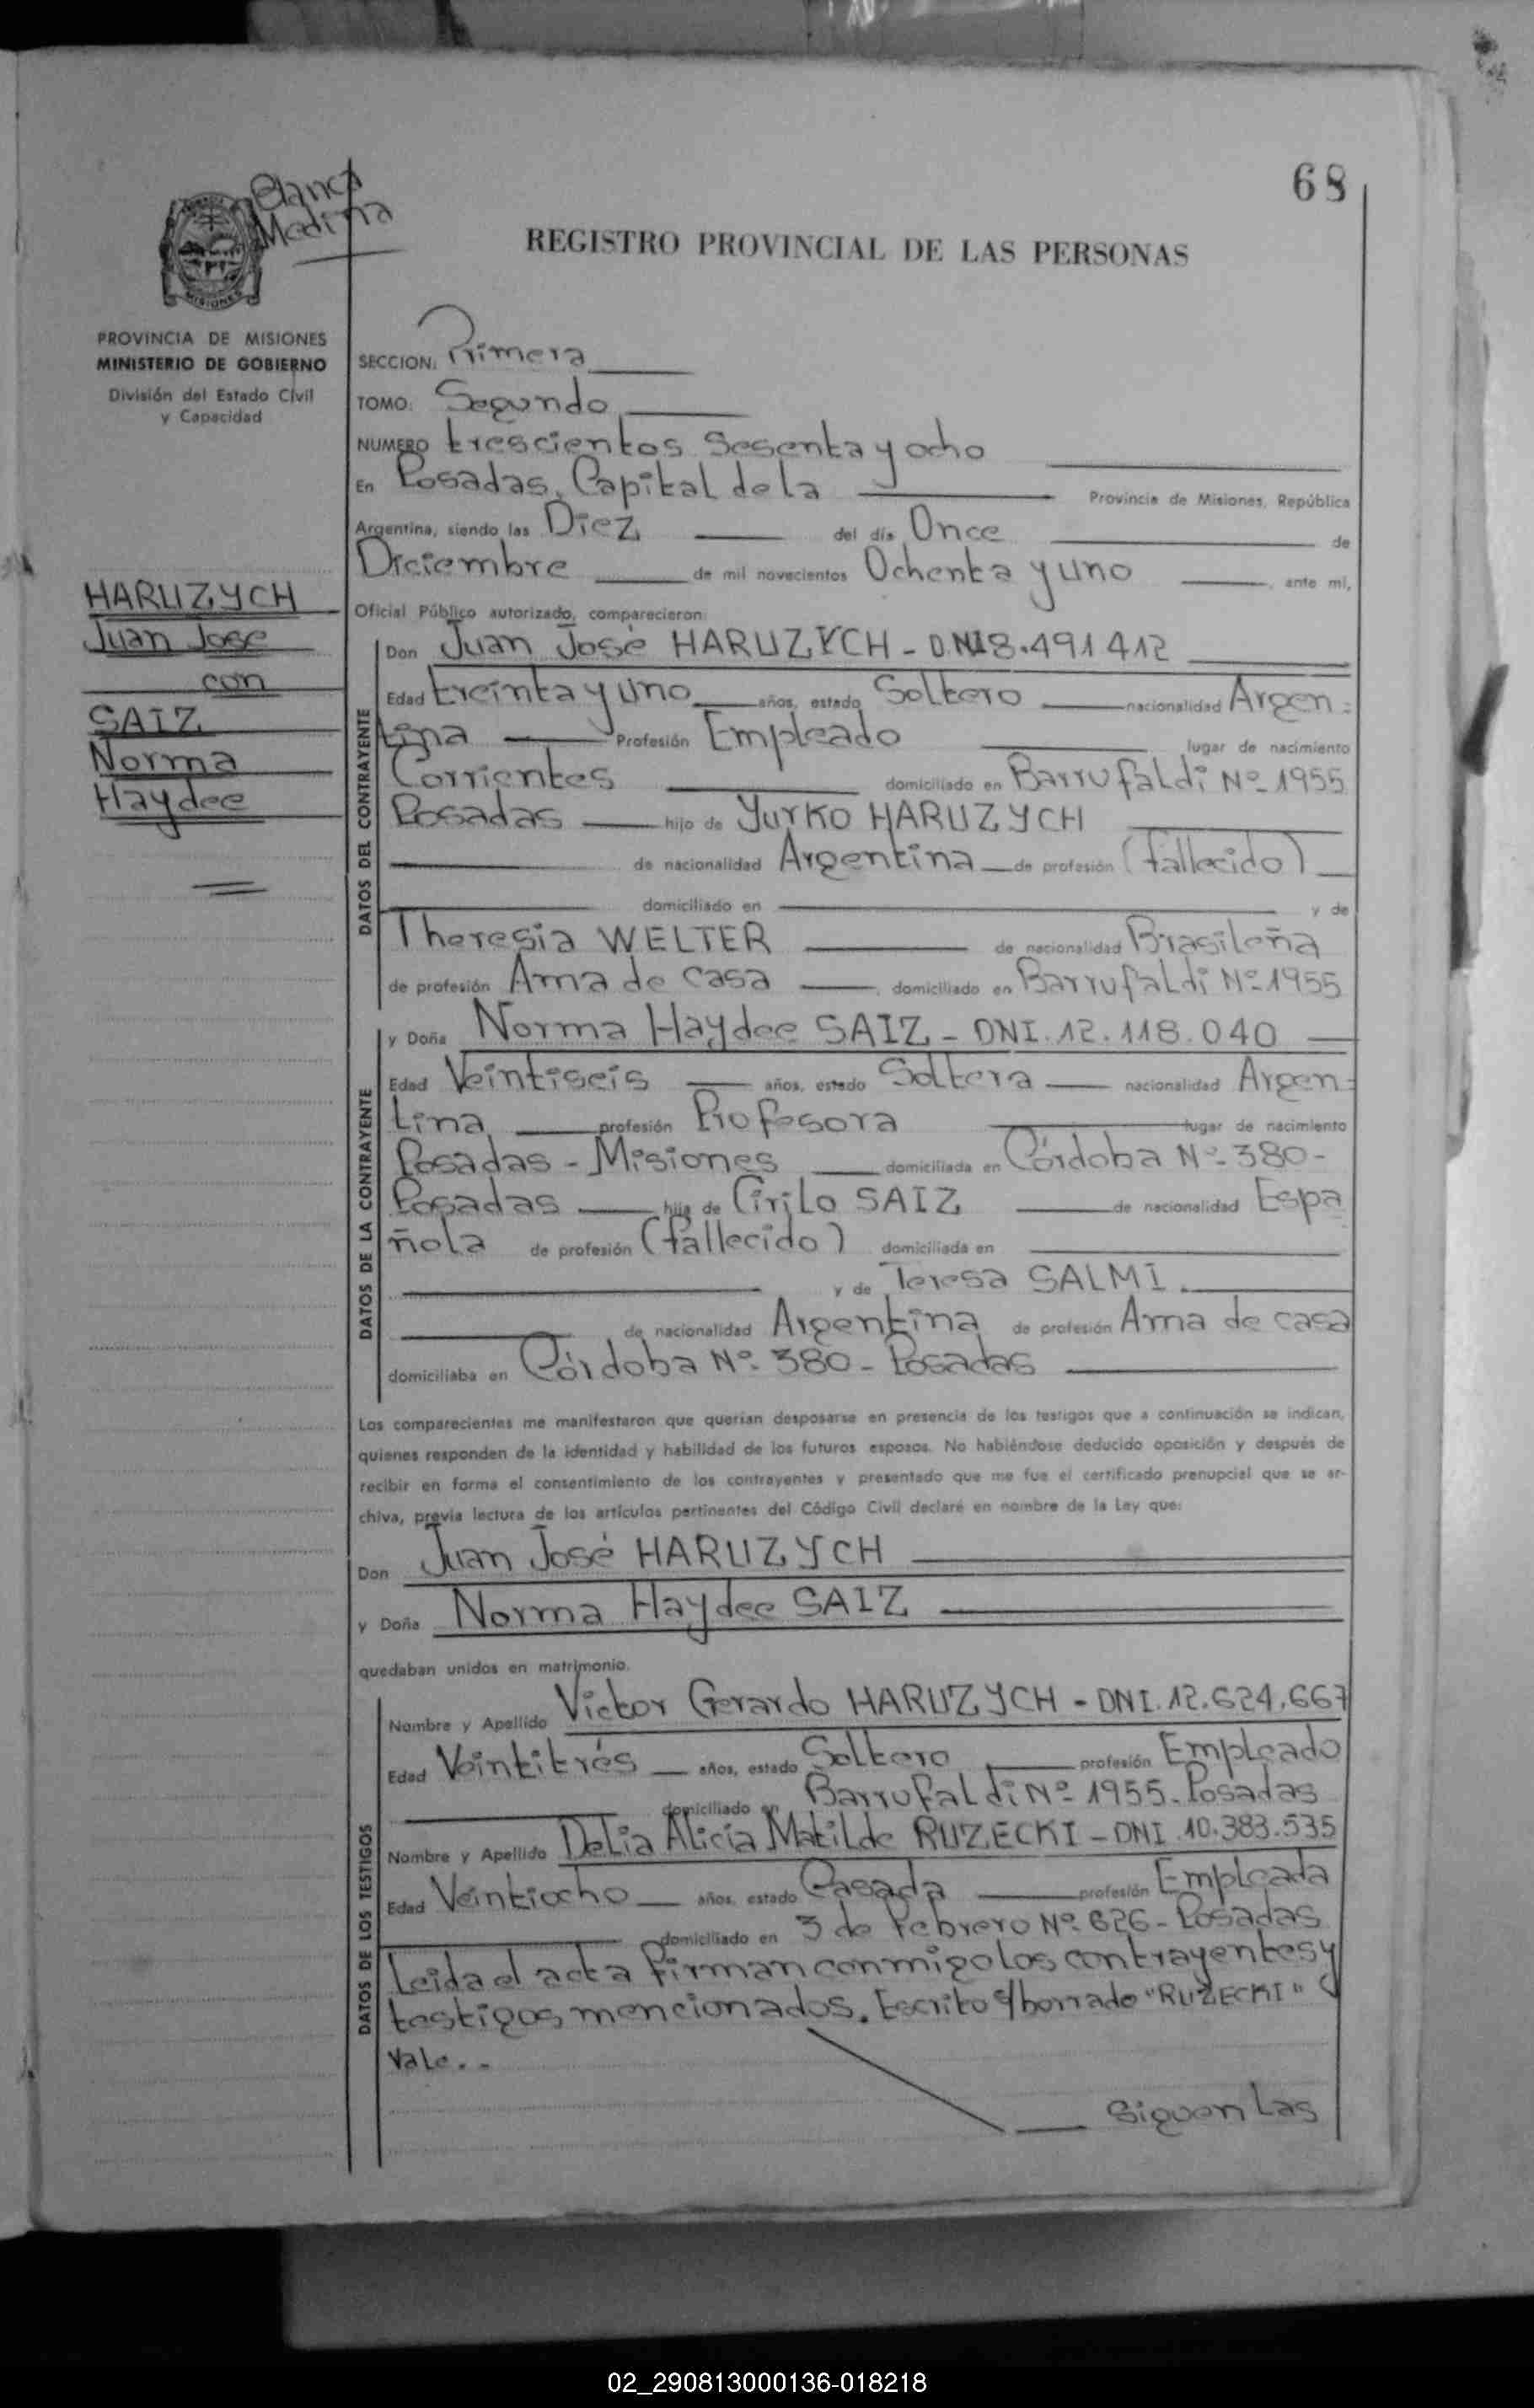 68
Blanca
Medina
MISIONES
REGISTRO PROVINCIAL DE LAS PERSONAS
PROVINCIA DE MISIONES
MINISTERIO DE GOBIERNO
División del Estado Civil
y Capacidad
HARUZYCH
Juan Jose
con
SAIZ
Norma
Haydee
SECCION: Primera
TOMO: Segundo
NUMERO trescientos sesenta y ocho
En Posadas, Capital de la Provincia de Misiones, República
Argentina, siendo las Diez del día Once de
Diciembre de mil novecientos Ochenta y uno, ante mi,
Oficial Público autorizado, comparecieron:
DATOS DEL CONTRAYENTE
Don Juan José HARUZYCH - DNI 8.491412
Edad treinta y uno años, estado Soltero nacionalidad Argen=
tina Profesión Empleado lugar de nacimiento
Corrientes domiciliado en Barrufaldi Nº 1955
Posadas hijo de Yurko HARUZYCH
de nacionalidad Argentina de profesión (fallecido)
domiciliado en y de
Theresia WELTER de nacionalidad Brasileña
de profesión Ama de casa, domiciliado en Barrufaldi Nº 1955
DATOS DE LA CONTRAYENTE
y Doña Norma Haydee SAIZ - DNI. 12.118.040
Edad Veintiseis años, estado Soltera nacionalidad Argen=
tina profesión Profesora lugar de nacimiento
Posadas - Misiones domiciliada en Córdoba Nº 380-
Posadas hija de Cirilo SAIZ de nacionalidad Espa
ñola de profesión (fallecido) domiciliada en
y de Teresa SALMI.
de nacionalidad Argentina de profesión Ama de casa
domiciliaba en Córdoba Nº 380 - Posadas
Los comparecientes me manifestaron que querían desposarse en presencia de los testigos que a continuación se indican,
quienes responden de la identidad y habilidad de los futuros esposos. No habiéndose deducido oposición y después de
recibir en forma el consentimiento de los contrayentes y presentado que me fue el certificado prenupcial que se ar-
chiva, previa lectura de los artículos pertinentes del Código Civil declaré en nombre de la Ley que:
Don Juan José HARUZYCH
y Doña Norma Haydee SAIZ
quedaban unidos en matrimonio.
DATOS DE LOS TESTIGOS
Nombre y Apellido Victor Gerardo HARUZYCH - DNI. 12.624.667
Edad Veintitrés años, estado Soltero profesión Empleado
domiciliado en Barrufaldi Nº 1955. Posadas
Nombre y Apellido Delia Alicia Matilde RUZECKI - DNI 10.383.535
Edad Veintiocho años, estado Casada profesión Empleada
domiciliado en 3 de Febrero Nº 626 - Posadas
Leida el acta firman conmigo los contrayentes y
testigos mencionados. Escrito s/borrado "RUZECKI"
Vale. -
Siguen las
02_290813000136-018218